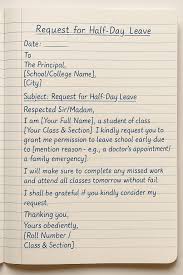 Request for Half-Day Leave
Date:
To
The Principal,
[School/College Name],
[City]
Subject: Request for Half-Day Leave
Respected Sir/Madam,
I am [Your Full Name], a student of class
[Your Class & Section]. I kindly request you to
grant me permission to leave school early due
to [mention reason - e.g., a doctor's appointment/
a family emergency].
I will make sure to complete any missed work
and attend all classes tomorrow without fail.
I shall be grateful if you kindly consider my
request.
Thanking you,
Yours obediently,
[Roll Number /
Class & Section]